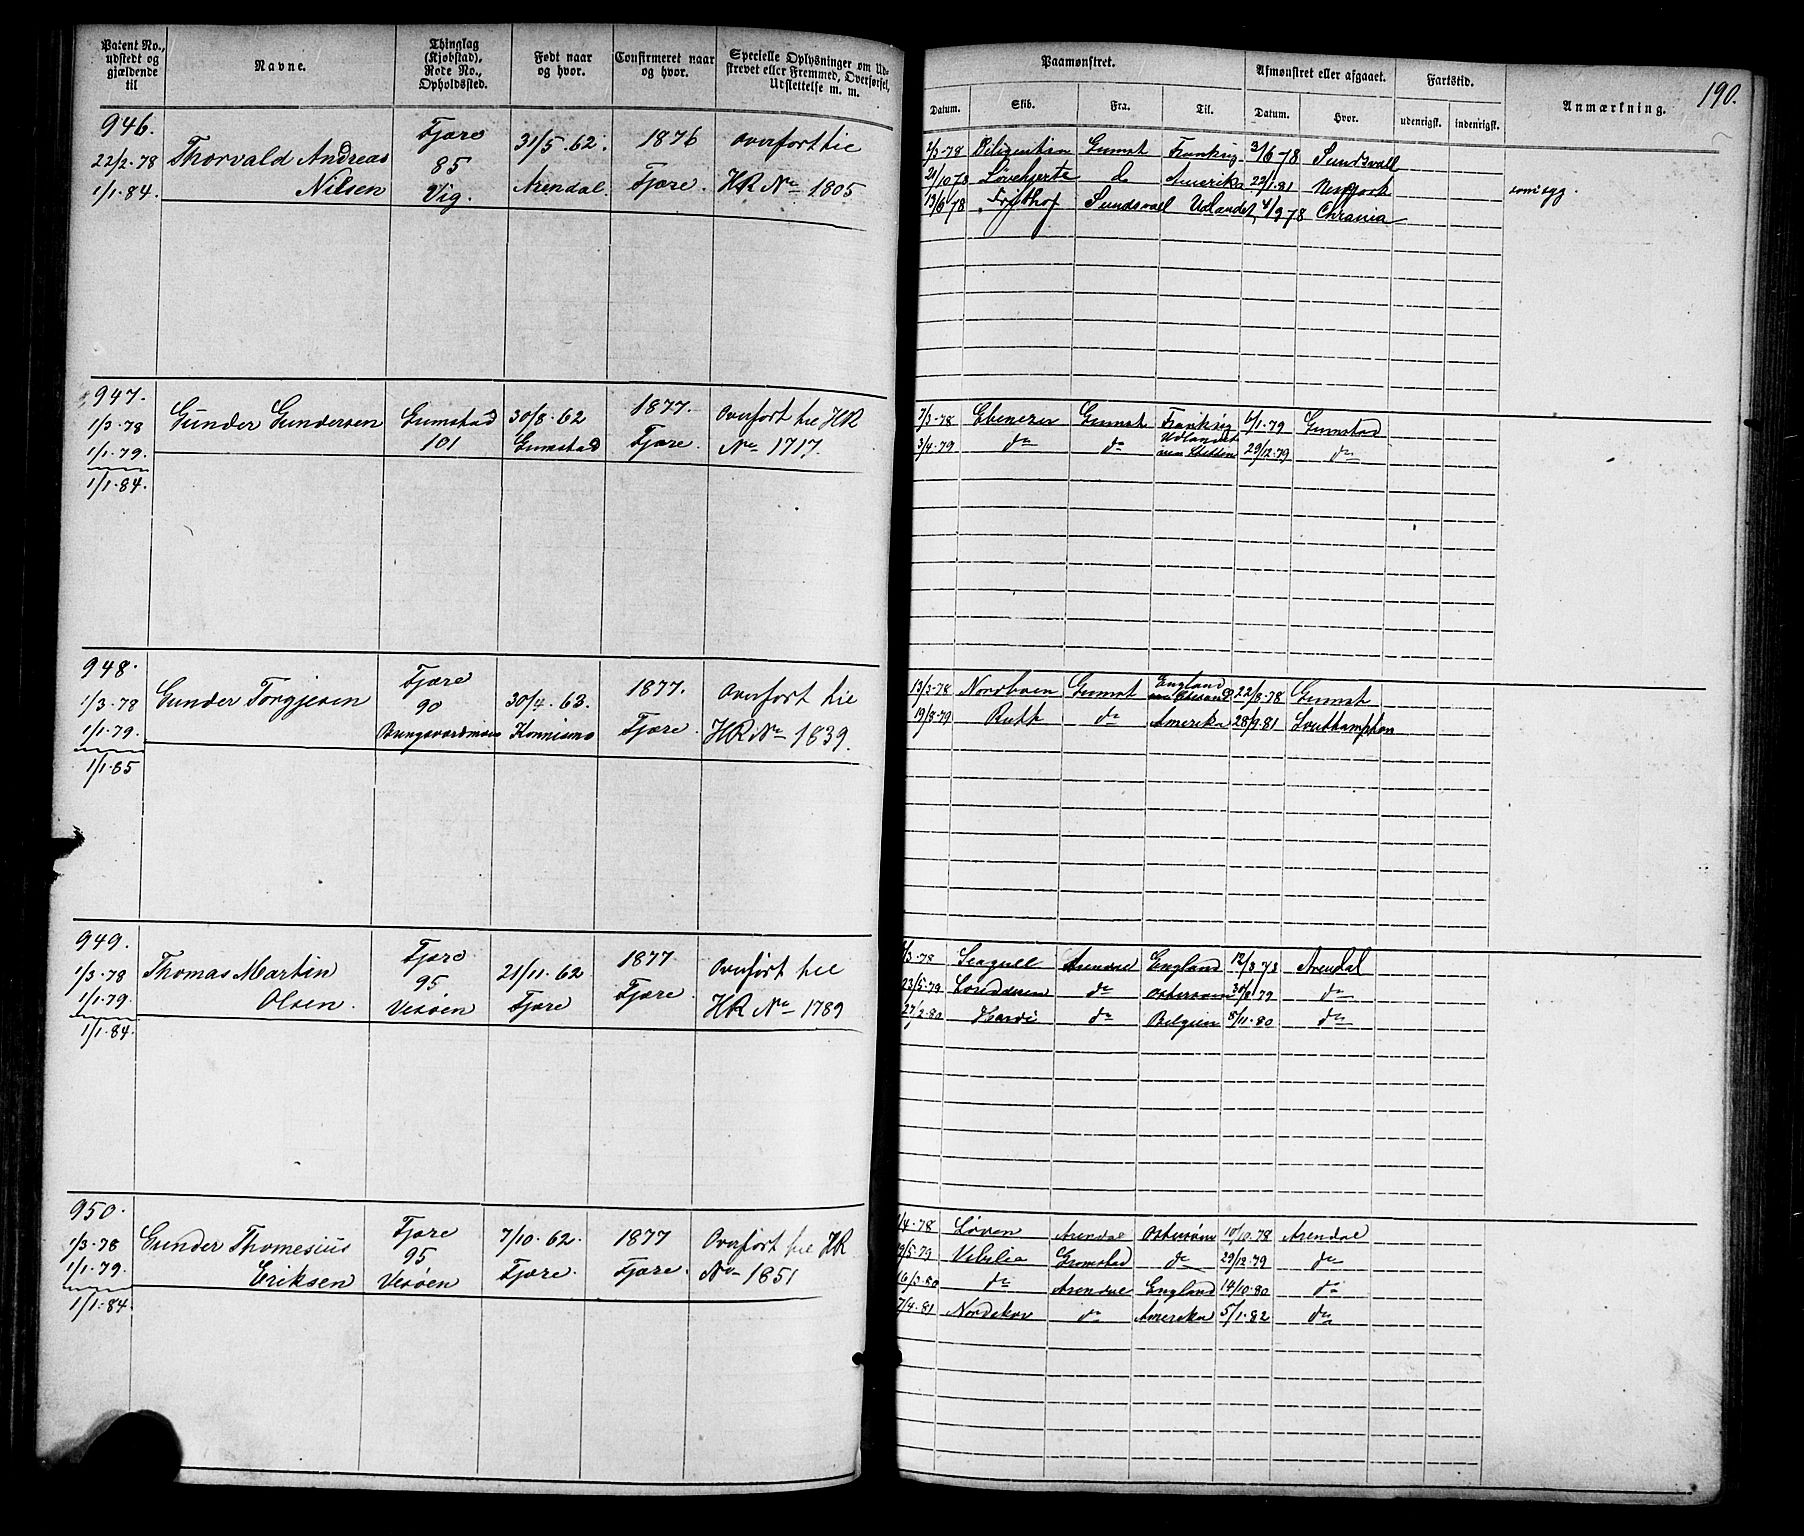 Patent No., udstedt og gjældende til
Navne.
Thinglag (Kjøbstad), Rode No., Opholdssted.
Født naar og hvor.
Confirmeret naar og hvor.
Specielle Oplysninger om Udskrevet eller Fremmed, Overførsel, Udslettelse m. m.
Paamønstret.
Afmønstret eller afgaaet.
Fartstid.
Anmærkning.
190.
Datum.
Skib.
Fra.
Til.
Datum.
Hvor.
udenrigsk.
indenrigsk.
946.
22/2.78
1/1.84.
Thorvald Andreas
Nilsen
Fjære
85
Vig.
31/5.62.
Arendal.
1876
Fjære.
Overført til
HR No 1805
Grmst Frankrig 3/6 78 Sundsvall
21/10 78 Løvehjerte do Amerika 22/1.81 Newyork
13/6 78 Frithjof Sundsvall Udlandet 4/9 78 Chrania
947.
1/3.78
1/1.79.
1/1.84.
Gunder Gundersen
Grimstad
101
30/8.62
Grimstad
1877.
Fjære.
Overført til HR
No 1717.
7/3.78 Ebenezer Grimst Frankrig 6/1.79 Grimstad
3/4.79 do do Udlandet via Stettin 29/12.79 do
948.
1/3.78
1/1.79.
1/1.85
Gunder Torgjesen
Fjære
90
30/4.63.
1877.
Fjære.
Overført til
HR No 1839.
13/3.78 Nordboen Grimst England 22/8.78 Grimst
19/8.79 Ruth do Amerika 28/9.81 Southampton
949.
1/3.78
1/1.79.
1/1.84.
Thomas Martin
Olsen.
Fjære
95
Vesøen
21/11.62
Fjære
1877
Fjære.
Overført til
HR No 1789
/3.78 Seagull Arendal England 12/8.78 Arendal
23/5.79 do Østersøen 30/8 79 do
27/2.80 do Belgien 8/11.80 do
950.
1/3.78
1/1.79.
1/1.84.
Gunder Thomesius
Eriksen
Fjære
95
Vesøen
7/10.62.
Fjære.
1877
Fjære.
Overført til HR
No 1851
/4.78 Løven Arendal Østersøen 10/10.78 Arendal
/5.79 Vibilia Grimstad do 29/12.79 do
16/3.80 do Arendal England 14/10.80 do
7/4.81 do Amerika 5/1.82 do